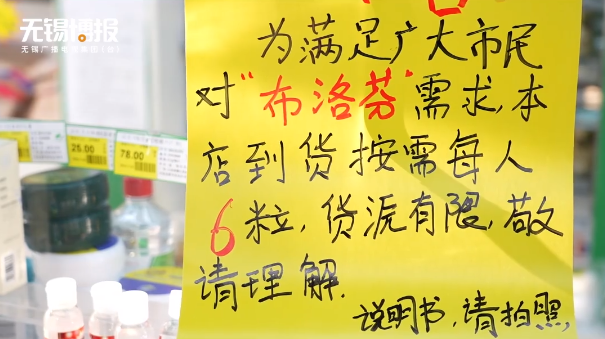 无锡博报
无锡广播电视集团(台)
为满足广大市民
对"布洛芬"需求,本
店到货按需每人
6粒,货源有限,敬
请理解.
说明书,请拍照,
25.00
78.00